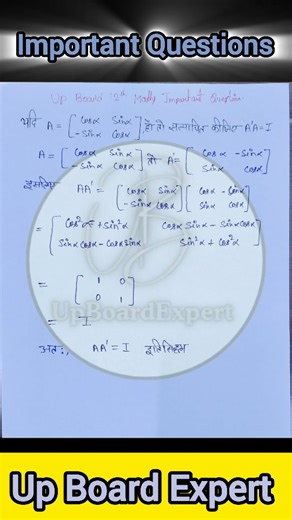 Important Questions
Up Board 12th Maths Important Question
यदि A = [cosα sinα; -sinα cosα] हो तो सत्यापित कीजिए A'A = I
A = [cosα sinα; -sinα cosα] तो A' = [cosα -sinα; sinα cosα]
इसलिए AA' = [cosα sinα; -sinα cosα] [cosα -sinα; sinα cosα]
= [cos²α + sin²α cosα sinα - sinα cosα; sinα cosα - cosα sinα sin²α + cos²α]
= [1 0; 0 1]
= I
अतः, AA' = I इतिसिद्धम
UpBoardExpert
Up Board Expert